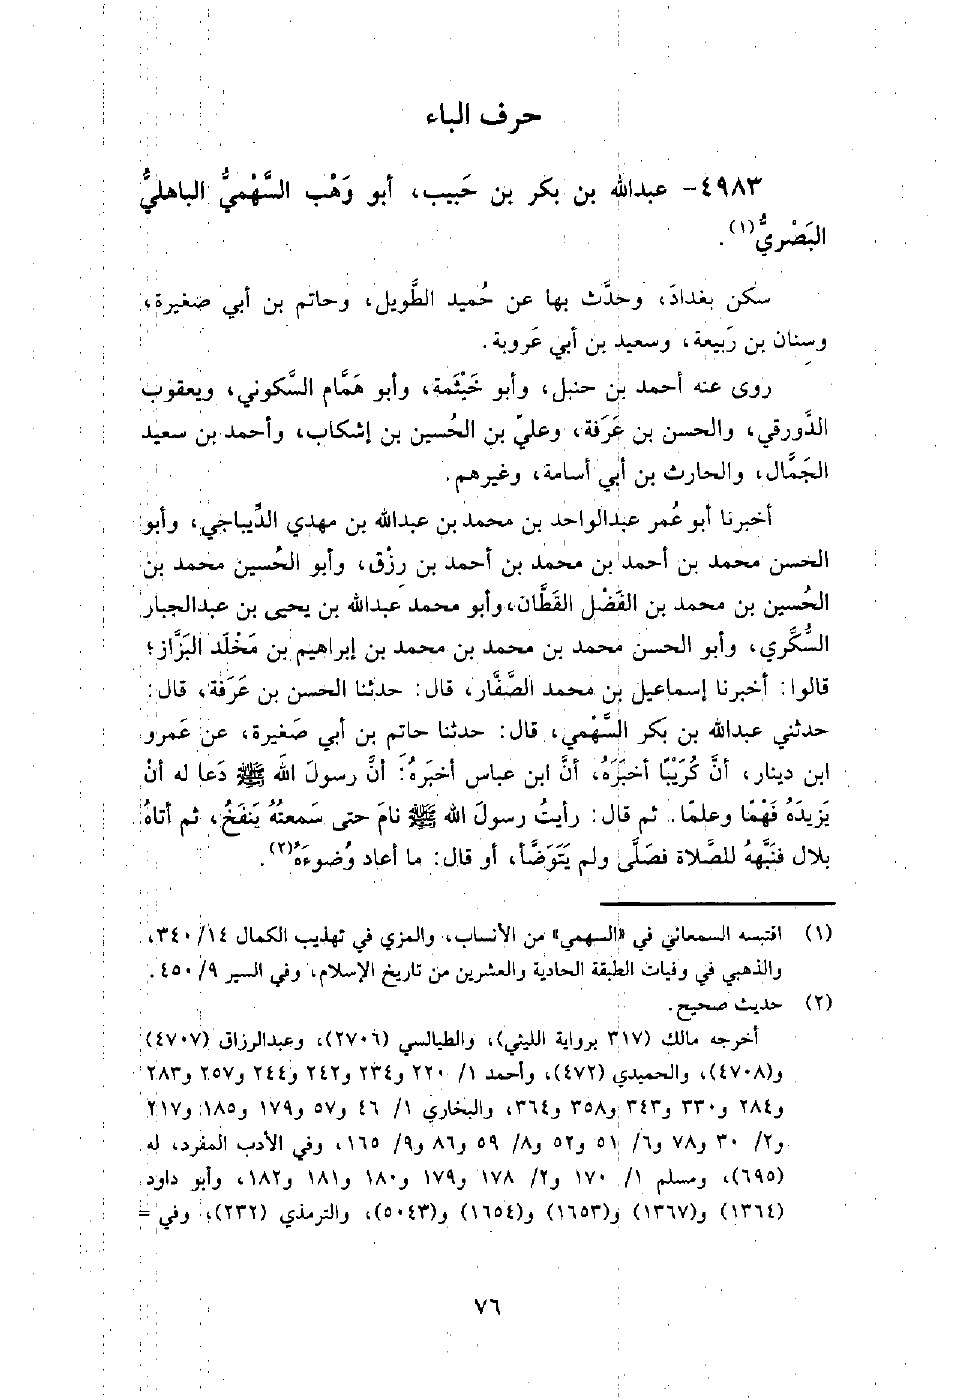 حرف الباء
٤٩٨٣- عبدالله بن بكر بن حَبيب، أبو وَهْب السَّهْميُّ الباهليُّ
البَصْريُّ(١).
سكن بغدادَ، وحدَّث بها عن حُميد الطَّويل، وحاتم بن أبي صغيرة،
وسنان بن رَبيعة، وسعيد بن أبي عَروبة.
روى عنه أحمد بن حنبل، وأبو خَيْثمة، وأبو هَمَّام السَّكوني، ويعقوب
الدَّورقي، والحسن بن عَرَفة، وعليّ بن الحُسين بن إشكاب، وأحمد بن سعيد
الجَمَّال، والحارث بن أبي أسامة، وغيرهم.
أخبرنا أبو عُمر عبدالواحد بن محمد بن عبدالله بن مهدي الدِّيباجي، وأبو
الحسن محمد بن أحمد بن محمد بن أحمد بن رزْق، وأبو الحُسين محمد بن
الحُسين بن محمد بن الفَضْل القَطَّان، وأبو محمد عبدالله بن يحيى بن عبدالجبار
السُّكَّري، وأبو الحسن محمد بن محمد بن محمد بن إبراهيم بن مَخْلَد البَزَّاز؛
قالوا: أخبرنا إسماعيل بن محمد الصَّفَّار، قال: حدثنا الحسن بن عَرَفة، قال:
حدثني عبدالله بن بكر السَّهْمي، قال: حدثنا حاتم بن أبي صَغيرة، عن عَمرو
ابن دينار، أنَّ كُرَيْبًا أخبَرَهُ، أنَّ ابن عباس أخبَرهُ: أنَّ رسولَ الله ﷺ دَعا له أنْ
يَزيدَهُ فَهْمًا وعلمًا. ثم قال: رأيتُ رسولَ الله ﷺ نامَ حتى سَمعتُهُ يَنفَخُ، ثم أتاهُ
بلال فنَبَّههُ للصَّلاة فصَلَّى ولم يَتَوَضَّأ، أو قال: ما أعاد وُضوءَهُ(٢).
(١) اقتبسه السمعاني في «السهمي» من الأنساب، والمزي في تهذيب الكمال ١٤/ ٣٤٠،
والذهبي في وفيات الطبقة الحادية والعشرين من تاريخ الإسلام، وفي السير ٩/ ٤٥٠.
(٢) حديث صحيح.
أخرجه مالك (٣١٧ برواية الليثي)، والطيالسي (٢٧٠٦)، وعبدالرزاق (٤٧٠٧)
و(٤٧٠٨)، والحميدي (٤٧٢)، وأحمد ١/ ٢٢٠ و٢٣٤ و٢٤٢ و٢٤٤ و٢٥٧ و٢٨٣
و٢٨٤ و٣٣٠ و٣٤٣ و٣٥٨ و٣٦٤، والبخاري ١/ ٤٦ و٥٧ و١٧٩ و١٨٥ و٢١٧
و٢/ ٣٠ و٧٨ و٦/ ٥١ و٥٢ و٨/ ٥٩ و٨٦ و٩/ ١٦٥، وفي الأدب المفرد، له
(٦٩٥)، ومسلم ١/ ١٧٠ و٢/ ١٧٨ و١٧٩ و١٨٠ و١٨١ و١٨٢، وأبو داود
(١٣٦٤) و(١٣٦٧) و(١٦٥٣) و(١٦٥٤) و(٥٠٤٣)، والترمذي (٢٣٢)، وفي =
٧٦